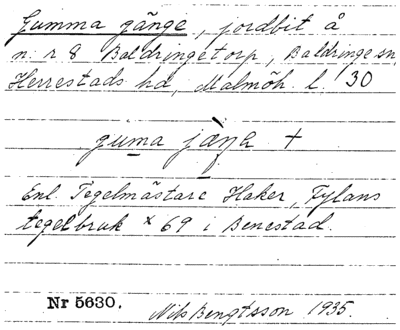 Gumma gänge, jordbit å
n:r 8 Baldringetorp, Baldringe sn,
Herrestads hd, Malmöh. l. 30
guma jäŋe +
Enl. Tegelmästare Haker, Fylans
tegelbruk × 69 i Benestad.
Nr 5630. Nils Bengtsson 1935.